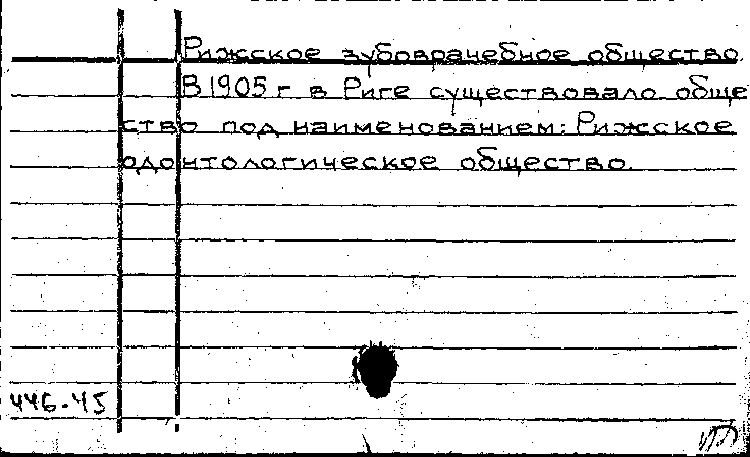 Рижское зубоврачебное общество.
В 1905 г в Риге существовало обще
ство под наименованием: Рижское
одонтологическое общество.
446-45